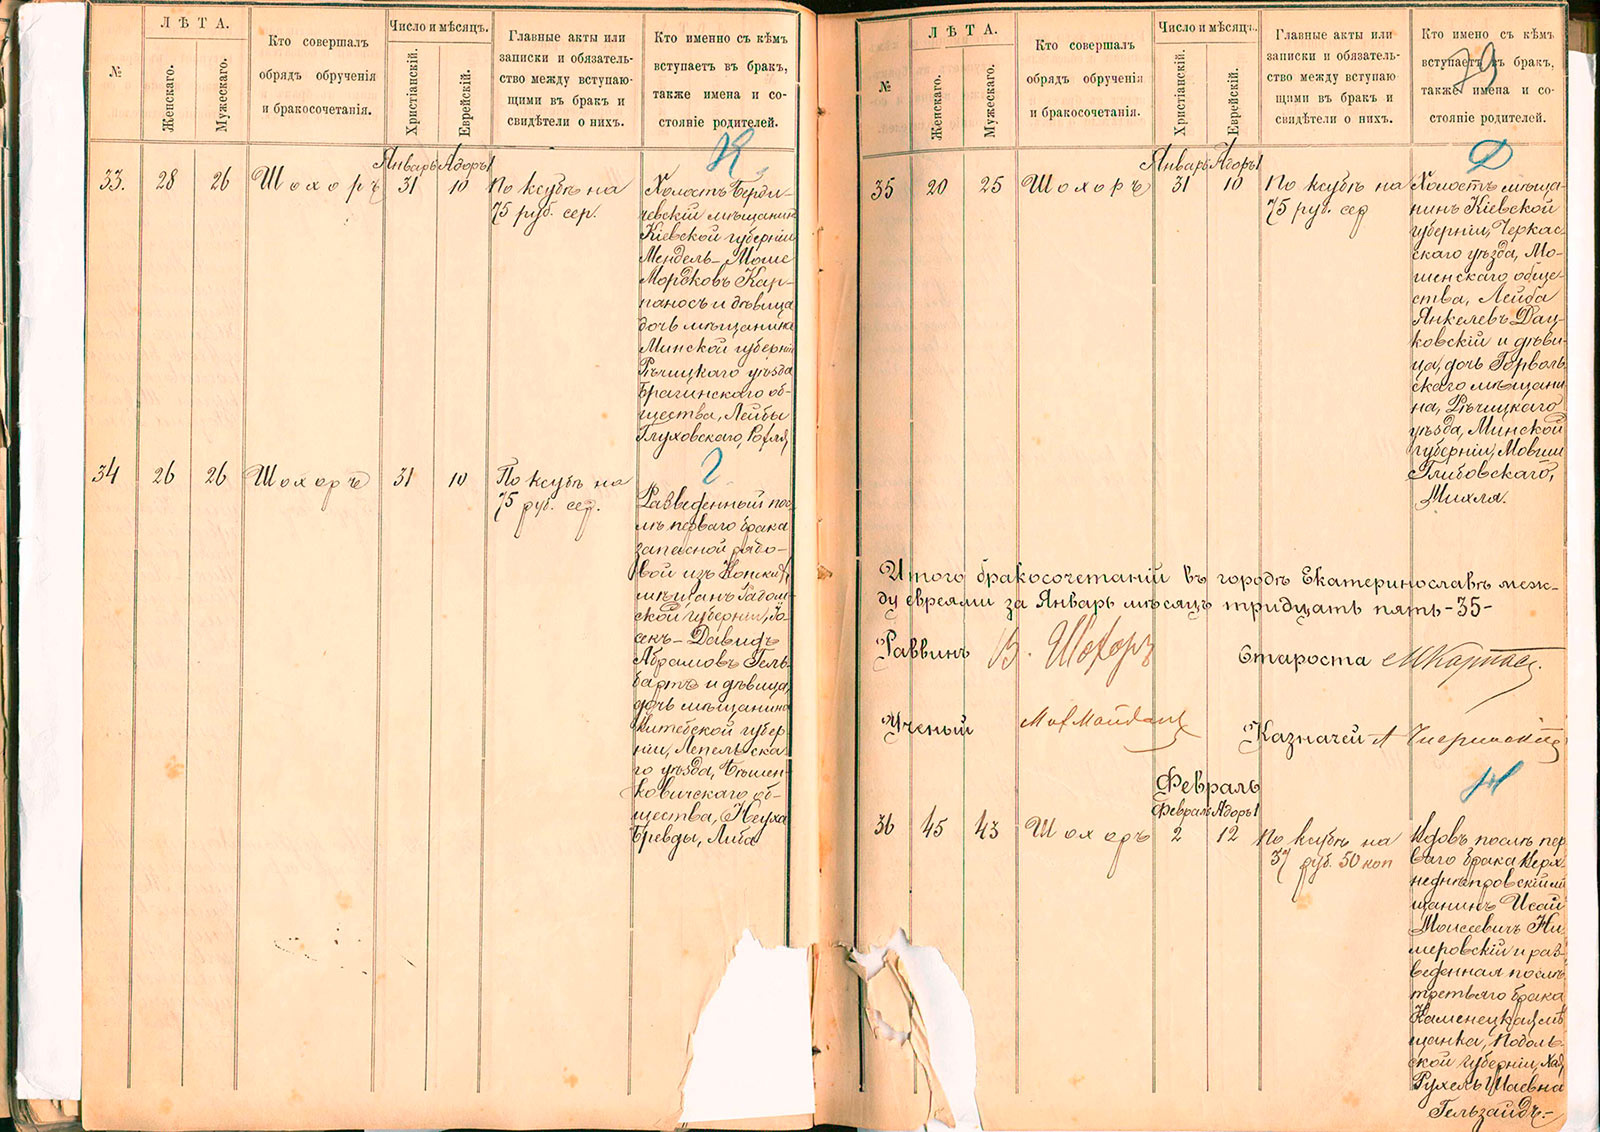 №
ЛѢТА.
Женскаго.
Мужескаго.
Кто совершалъ
обрядъ обрученія
и бракосочетанія.
Число и мѣсяцъ.
Христіанскій.
Еврейскій.
Главные акты или
записки и обязатель-
ство между вступаю-
щими въ бракъ и
свидѣтели о нихъ.
Кто именно съ кѣмъ
вступаетъ въ бракъ,
также имена и со-
стояніе родителей.
К
Январь Адоръ 1
33. 28 26 Шохоръ 31 10
По ксубѣ на
75 руб. сер.
Холостъ Берди-
чевскій мѣщанинъ
Кіевской губерніи
Мендель-Моше
Мордковъ Кар-
паносъ и дѣвица
дочь мѣщанина
Минской губерніи
Рѣчицкаго уѣзда
Брагинскаго об-
щества, Лейбы
Глуховскаго, Рохля
Г
34 26 26 Шохоръ 31 10
По ксубѣ на
75 руб. сер.
Разведенный пос-
лѣ перваго брака
запасной рядо-
вой изъ
мѣщанъ Радом-
ской губерніи,
Давидъ
Абрамовъ Гель-
бартъ и дѣвица,
дочь мѣщанина
Витебской губер-
ніи, Лепельска-
го уѣзда, Бѣшен-
ковичскаго об-
щества,
Бревды, Либа
79
№
ЛѢТА.
Женскаго.
Мужескаго.
Кто совершалъ
обрядъ обрученія
и бракосочетанія.
Число и мѣсяцъ.
Христіанскій.
Еврейскій.
Главные акты или
записки и обязатель-
ство между вступаю
щими въ бракъ и
свидѣтели о нихъ.
Кто имено съ кѣмъ
вступаетъ въ бракъ,
также имена и со-
стояніе родителей.
Д
Январь Адоръ 1
35 20 25 Шохоръ 31 10
По ксубѣ на
75 руб. сер
Холостъ мѣща-
нинъ Кіевской
губерніи, Черкас-
скаго уѣзда, Мо-
шенскаго обще-
ства, Лейба
Янкелевъ Дац-
ковскій и дѣви-
ца, дочь Горволь-
скаго мѣщани-
на, Рѣчицкаго
уѣзда, Минской
губерніи, Мовши
Глибовскаго,
Михля.
Итого бракосочетаній въ городѣ Екатеринославѣ меж-
ду евреями за Январь мѣсяцъ тридцать пять -35-
Раввинъ В. Шохоръ Староста М Карпас
Ученый Казначей
Февраль
Н
Февраль Адоръ 1
36 45 43 Шохоръ 2 12
По ксубѣ на
37 руб. 50 коп
Вдовъ послѣ пер
ваго брака Верх
неднѣпровскій мѣ
щанинъ Исай
Моисеевичъ Не-
меровскій и раз-
веденная послѣ
третьяго брака
Каменецкая мѣ
щанка, Подоль-
ской губерніи, Хая
Рухель Шаевна
Гельзайдъ-